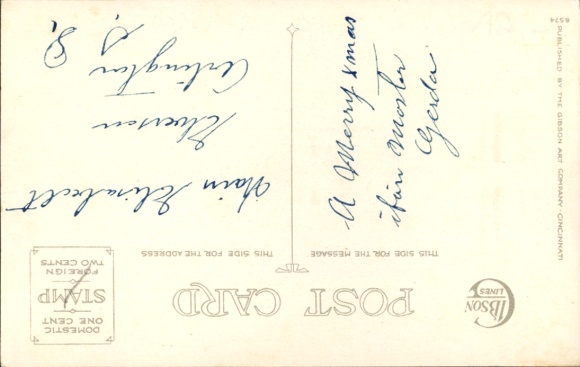 GIBSON
LINES
POST CARD
DOMESTIC
ONE CENT
STAMP
FOREIGN
TWO CENTS
THIS SIDE FOR THE MESSAGE
THIS SIDE FOR THE ADDRESS
A Merry Xmas
ifrån Moster
Gerda
Elisabeth
Arlington
S. D.
8574 PUBLISHED BY THE GIBSON ART COMPANY-CINCINNATI